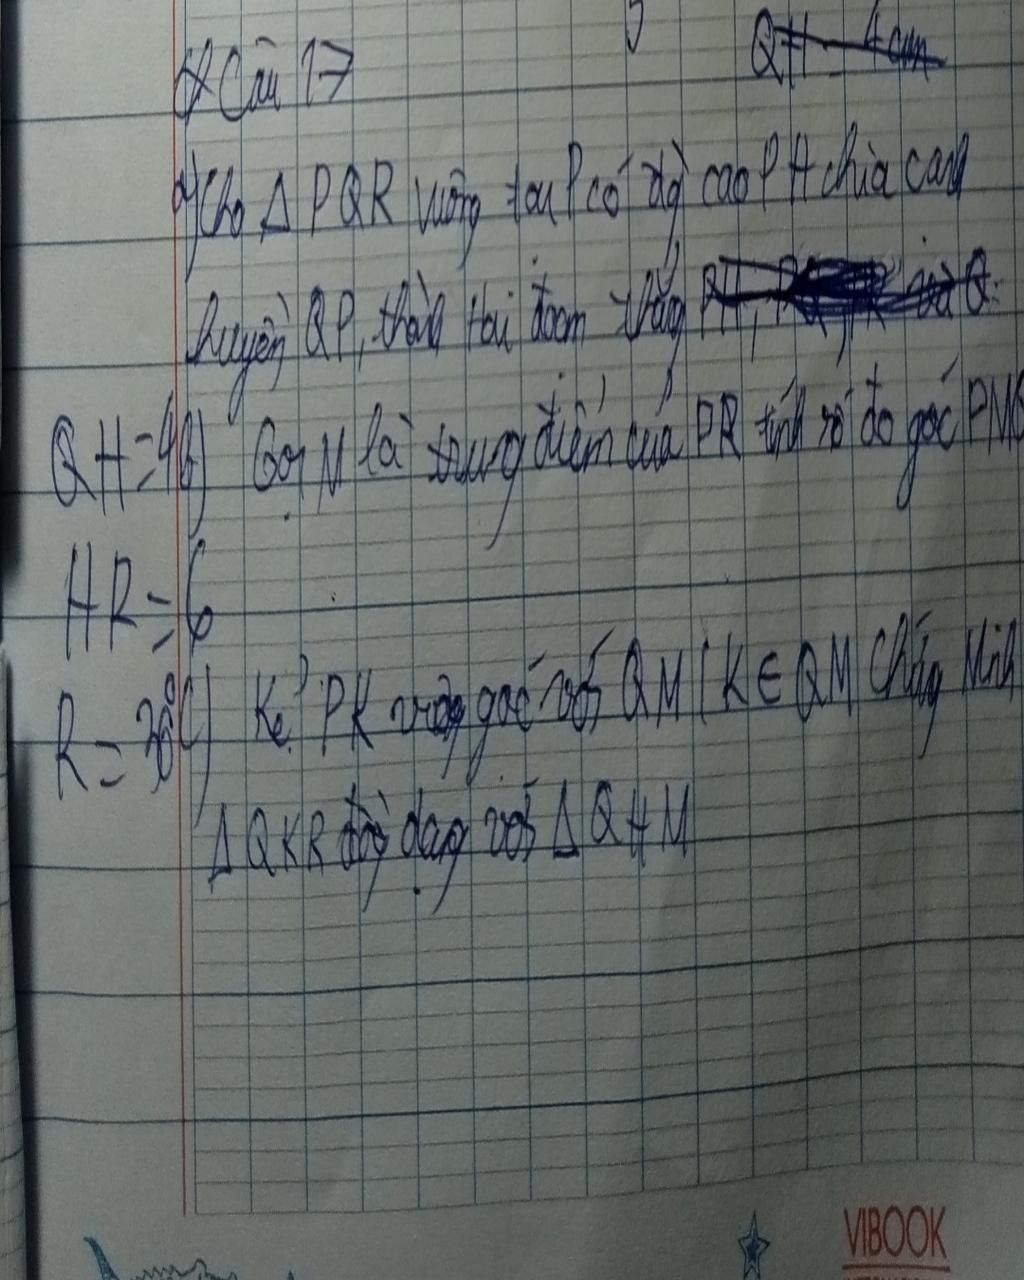 * Câu 17
QH = 4cm
a) Cho Δ PQR vuông tại P có đg cao PH chia cạnh
huyền QP, thành hai đoạn thẳng
QH = 4 b) Gọi M là trung điểm của PR tính số đo góc PMQ
HR = 6
R = 30° c) Kẻ PK vuông góc với QM (K ∈ QM Chứng Minh
Δ QKR đồng dạng với Δ QHM
VIBOOK